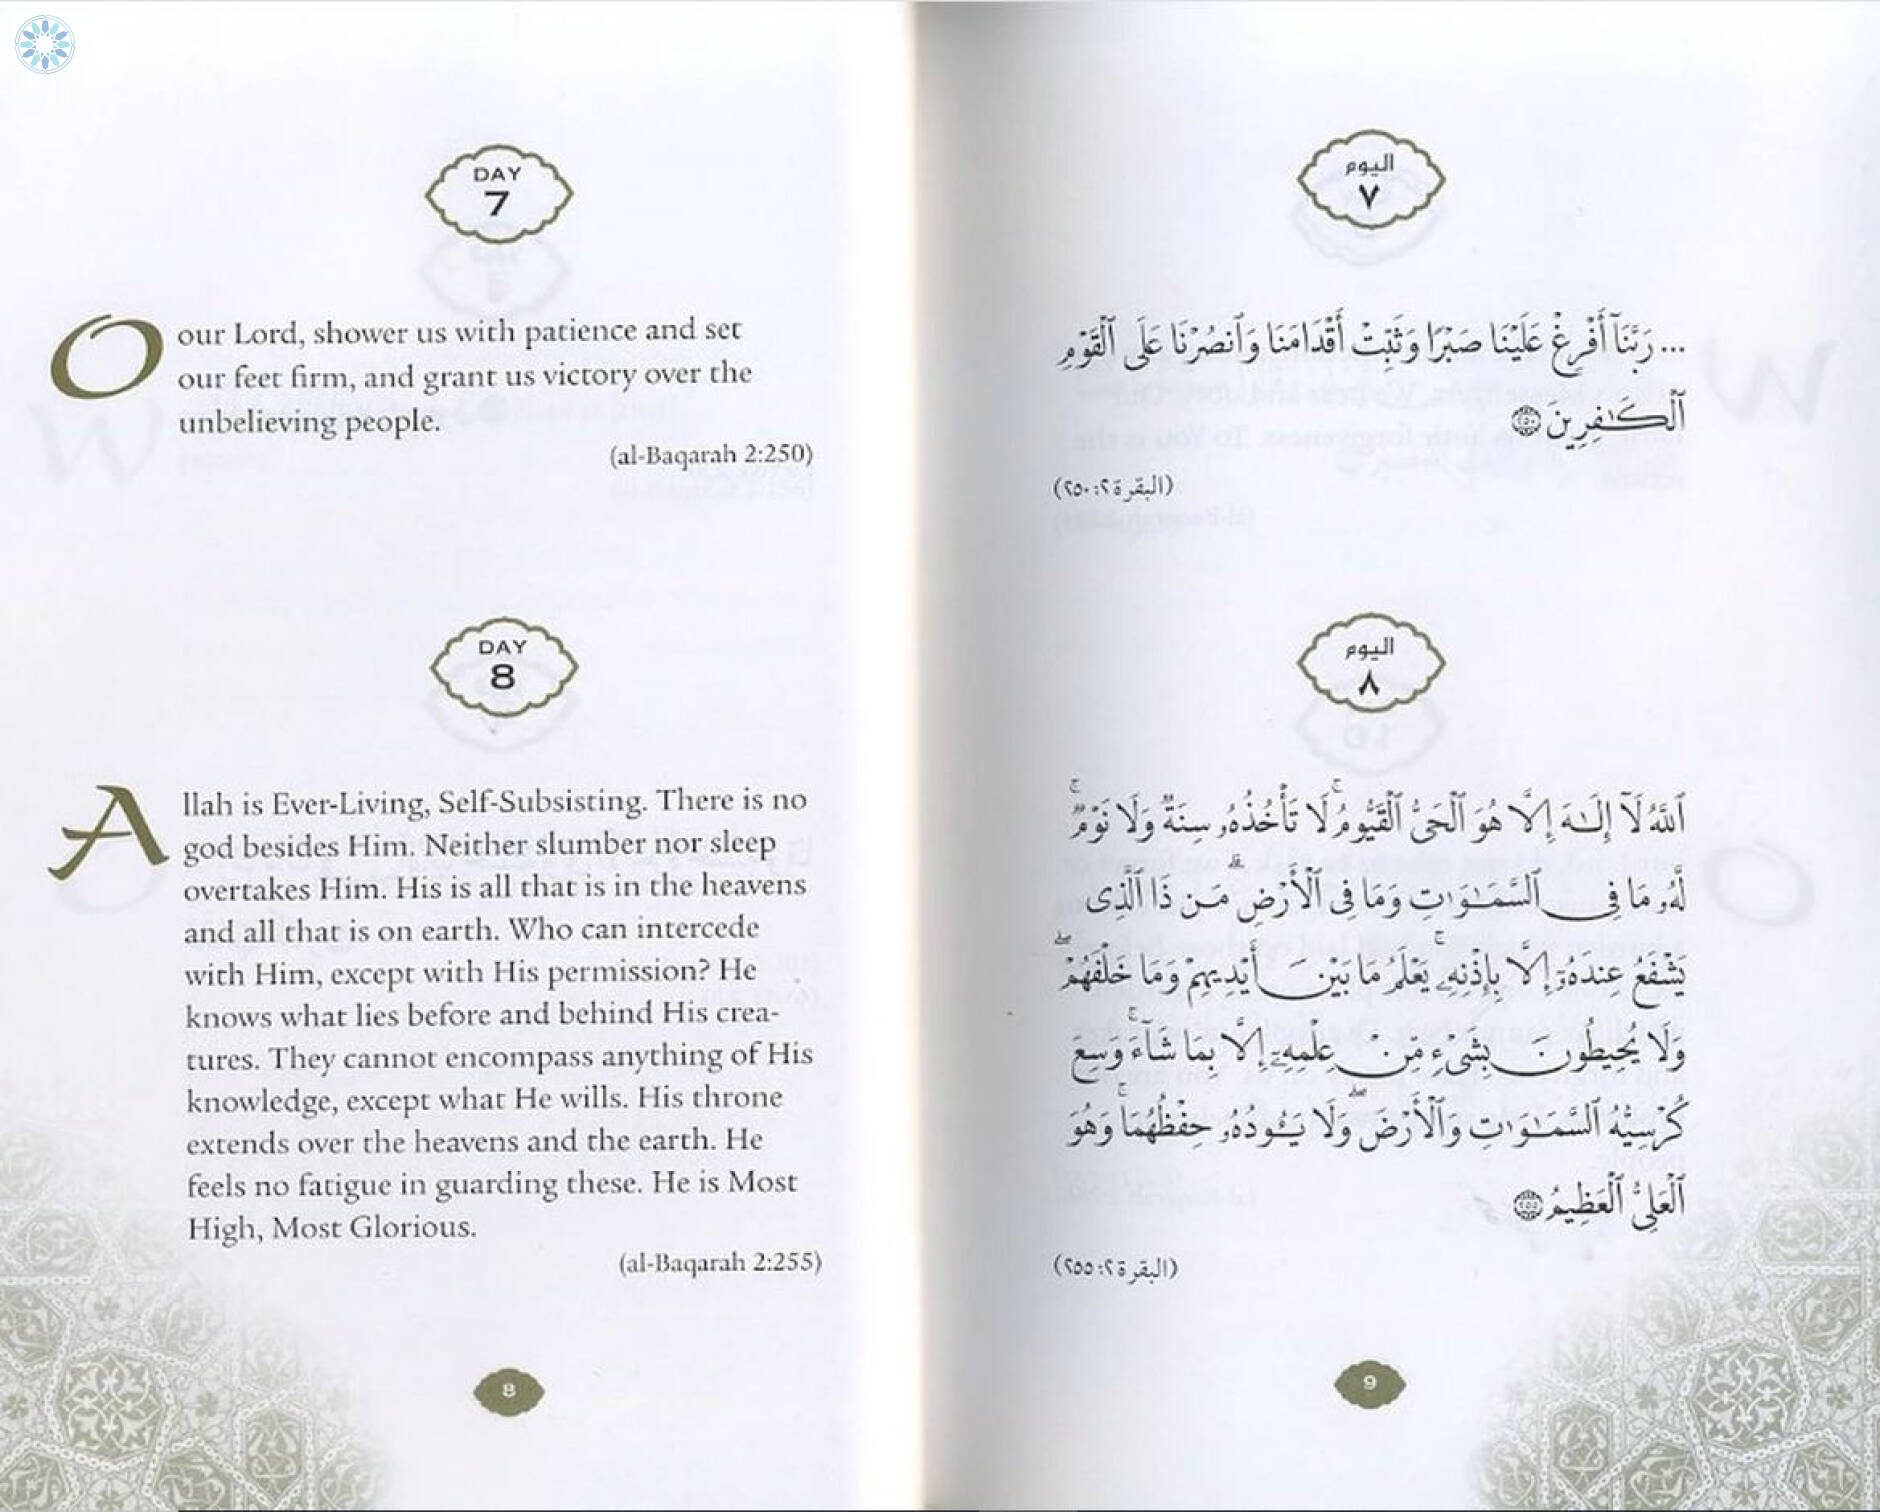 DAY
7
O our Lord, shower us with patience and set
our feet firm, and grant us victory over the
unbelieving people.
(al-Baqarah 2:250)
DAY
8
Allah is Ever-Living, Self-Subsisting. There is no
god besides Him. Neither slumber nor sleep
overtakes Him. His is all that is in the heavens
and all that is on earth. Who can intercede
with Him, except with His permission? He
knows what lies before and behind His crea-
tures. They cannot encompass anything of His
knowledge, except what He wills. His throne
extends over the heavens and the earth. He
feels no fatigue in guarding these. He is Most
High, Most Glorious.
(al-Baqarah 2:255)
8
اليوم
٧
... رَبَّنَآ أَفْرِغْ عَلَيْنَا صَبْرًا وَثَبِّتْ أَقْدَامَنَا وَٱنصُرْنَا عَلَى ٱلْقَوْمِ
ٱلْكَٰفِرِينَ ۝٢٥٠
(البقرة ٢:٢٥٠)
اليوم
٨
ٱللَّهُ لَآ إِلَٰهَ إِلَّا هُوَ ٱلْحَىُّ ٱلْقَيُّومُ ۚ لَا تَأْخُذُهُۥ سِنَةٌ وَلَا نَوْمٌ ۚ
لَّهُۥ مَا فِى ٱلسَّمَٰوَٰتِ وَمَا فِى ٱلْأَرْضِ ۗ مَن ذَا ٱلَّذِى
يَشْفَعُ عِندَهُۥٓ إِلَّا بِإِذْنِهِۦ ۚ يَعْلَمُ مَا بَيْنَ أَيْدِيهِمْ وَمَا خَلْفَهُمْ ۖ
وَلَا يُحِيطُونَ بِشَىْءٍ مِّنْ عِلْمِهِۦٓ إِلَّا بِمَا شَآءَ ۚ وَسِعَ
كُرْسِيُّهُ ٱلسَّمَٰوَٰتِ وَٱلْأَرْضَ ۖ وَلَا يَـُٔودُهُۥ حِفْظُهُمَا ۚ وَهُوَ
ٱلْعَلِىُّ ٱلْعَظِيمُ ۝٢٥٥
(البقرة ٢:٢٥٥)
9